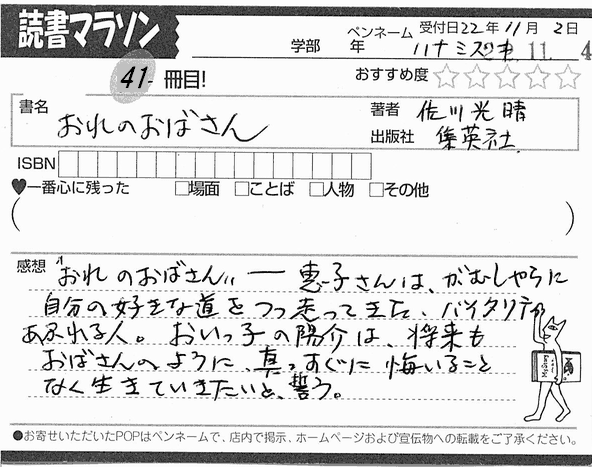 読書マラソン
受付日22年11月2日
学部 年 ペンネーム
ハナミズキ 11 4
41冊目!
おすすめ度☆☆☆☆☆
書名 おれのおばさん
著者 佐川光晴
出版社 集英社
ISBN
♥一番心に残った □場面 □ことば □人物 □その他
( )
感想 "おれのおばさん"― 恵子さんは、がむしゃらに
自分の好きな道をつっ走ってきた、バイタリティ
あふれる人。おいっ子の陽介は、将来も
おばさんのように、真っすぐに悔いること
なく生きていきたいと、誓う。
●お寄せいただいたPOPはペンネームで、店内で掲示、ホームページおよび宣伝物への転載をご了承ください。